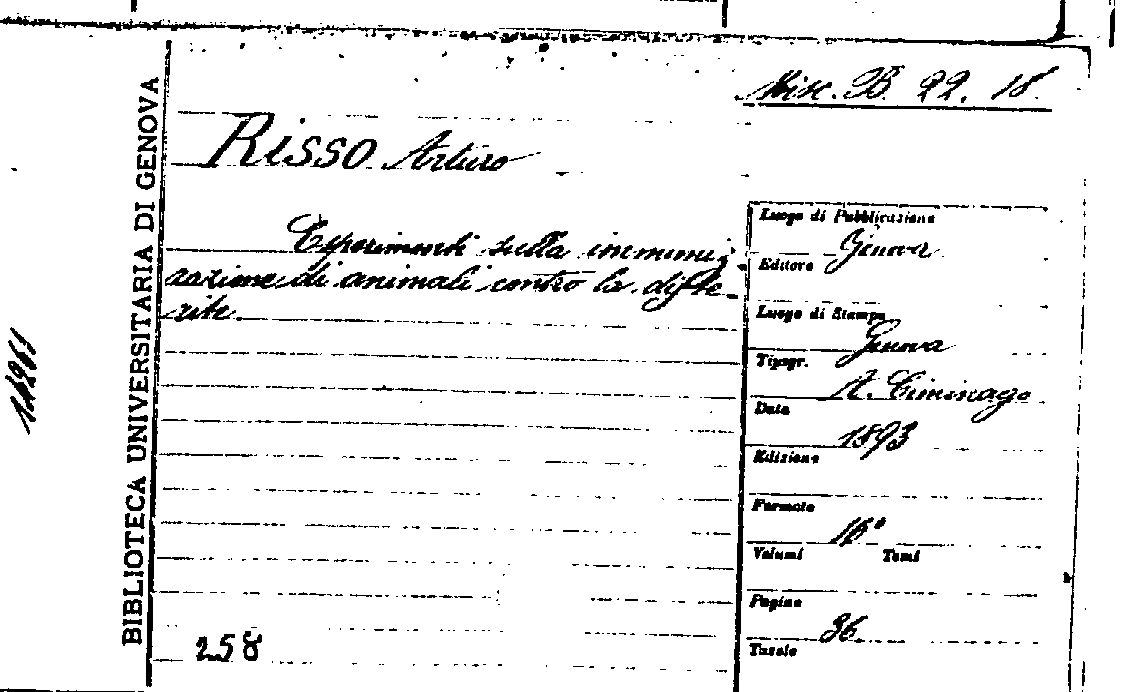 BIBLIOTECA UNIVERSITARIA DI GENOVA
Misc. B. 22. 18
RISSO Arturo
Esperimenti sulla immuni-
zazione di animali contro la difte-
rite.
258
Luogo di Pubblicazione
Genova
Editore
Luogo di Stampa
Genova
Tipogr.
A. Ciminago
Data
1893
Edizione
Formato
16°
Volumi Tomi
Pagine
36
Tavole